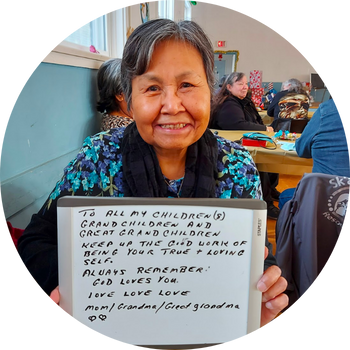 TO ALL MY CHILDREN(S)
GRANDCHILDREN AND
GREAT GRANDCHILDREN
KEEP UP THE GOOD WORK OF
BEING YOUR TRUE + LOVING
SELF.
ALWAYS REMEMBER:
GOD LOVES YOU.
LOVE LOVE LOVE
Mom/Grandma/Great grandma
STAPLES
EXIT